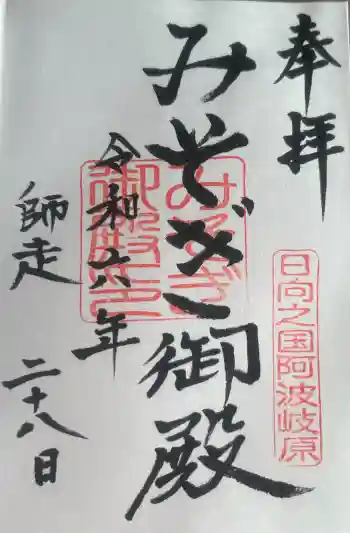 奉拝
日向之国阿波岐原
みそぎ御殿
みそぎ
御殿之印
令和六年
師走
二十八日